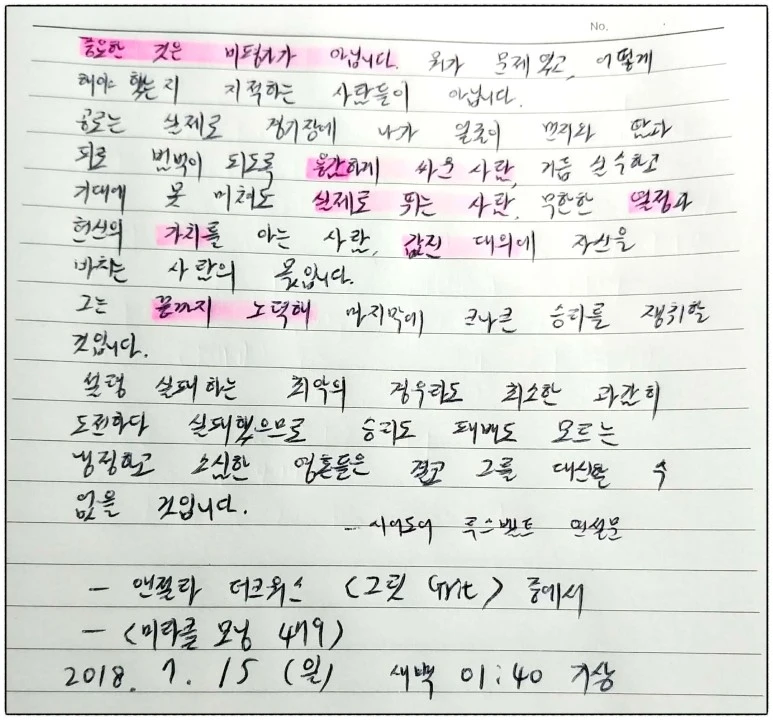 No.
중요한 것은 비평가가 아닙니다. 뭐가 문제였고, 어떻게
해야 했는지 지적하는 사람들이 아닙니다.
공로는 실제로 경기장에 나가 얼굴이 먼지와 땀과
피로 범벅이 되도록 용감하게 싸운 사람, 거듭 실수하고
기대에 못 미쳐도 실제로 뛰는 사람, 무한한 열정과
헌신의 가치를 아는 사람, 값진 대의에 자신을
바치는 사람의 몫입니다.
그는 끝까지 노력해 마지막에 크나큰 승리를 쟁취할
것입니다.
설령 실패하는 최악의 경우라도 최소한 과감히
도전하다 실패했으므로 승리도 패배도 모르는
냉정하고 소심한 영혼들은 결코 그를 대신할 수
없을 것입니다.
- 시어도어 루스벨트 연설문
- 앤절라 더크워스 <그릿 Grit> 중에서
- <미라클 모닝 479>
2018. 7. 15 (일) 새벽 01:40 기상